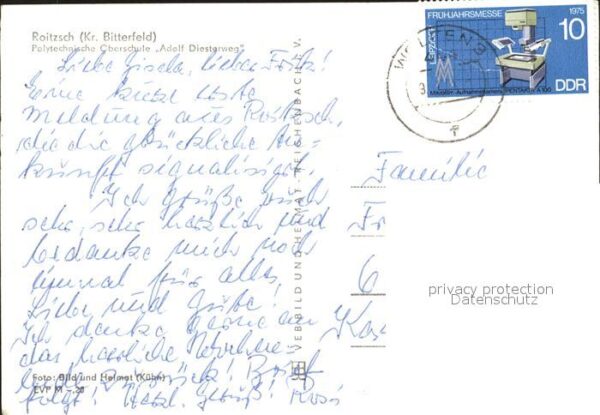 Roitzsch (Kr. Bitterfeld)
Polytechnische Oberschule „Adolf Diesterweg"
Liebe Gisela, lieber Fritz!
Eine kurze erste
Meldung aus Roitzsch,
die die glückliche An-
kunft signalisiert.
Ich grüße euch
sehr, sehr herzlich und
bedanke mich noch
einmal für alles
Liebe und Gute!
Ich danke gerne an
das herrliche
zurück! Brief
folgt! Herzl. Grüße! Rosi
Foto: Bild und Heimat (Kühn)
EVP M -,20
VEB BILD UND HEIMAT REICHENBACH I. V.
FRÜHJAHRSMESSE
1975
LEIPZIGER
10
DDR
PENTAKTA A 100
Familie
F
6
Ka
privacy protection
Datenschutz